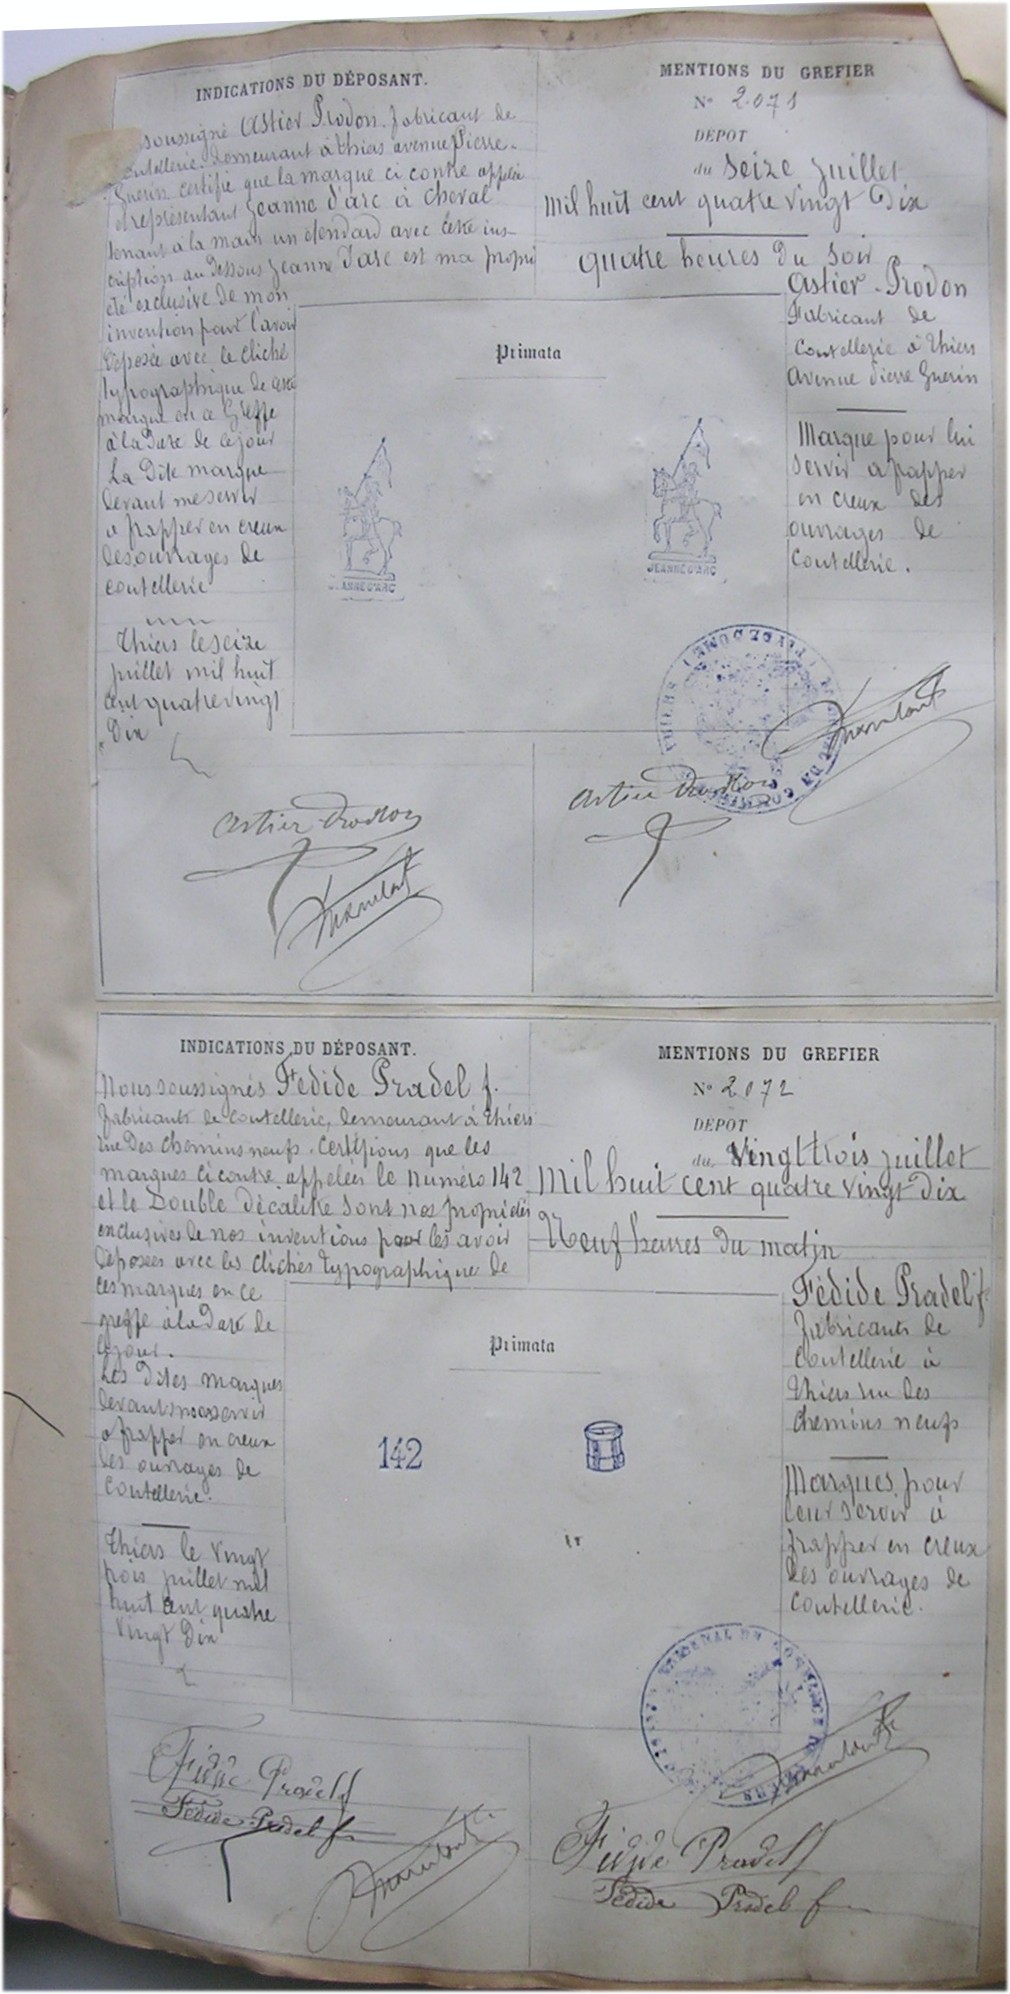 INDICATIONS DU DÉPOSANT.
soussigné Astier Prodon. fabricant de
coutellerie. demeurant à thiers avenue Pierre-
Guerin certifie que la marque ci contre appelée
et représentant Jeanne d'arc à cheval
tenant à la main un étendard avec cette ins-
cription au dessous Jeanne d'arc est ma propri
été exclusive de mon
invention pour l'avoir
déposée avec le cliché
typographique de cette
marque en ce Greffe
à la date de ce jour
La dite marque
devant me servir
a frapper en creux
des ouvrages de
coutellerie
Thiers le seize
juillet mil huit
cent quatre vingt
Dix
Astier Prodon
MENTIONS DU GREFIER
N° 2.071
DÉPOT
du Seize Juillet
Mil huit cent quatre vingt Dix
Quatre heures du Soir
Astier-Prodon
Fabricant de
Coutellerie à Thiers
Avenue Pierre Guerin
Marque pour lui
servir a frapper
en creux des
ouvrages de
Coutellerie.
Primata
JEANNE D'ARC
JEANNE D'ARC
Astier Prodon
INDICATIONS DU DÉPOSANT.
Nous soussignés Fédide Pradel f.
fabricants de coutellerie, demeurant à Thiers
rue des chemins neufs. Certifions que les
marques ci contre appelées le numéro 142
et le Double décalitre sont nos propriétés
exclusives de nos inventions pour les avoir
déposées avec les clichés typographique de
ces marques en ce
greffe à la date de
ce jour.
Les Dites marques
devant nous servir
a frapper en creux
des ouvrages de
Coutellerie.
Thiers le vingt
trois juillet mil
huit cent quatre
vingt Dix
Fédide Pradel f
Fédide Pradel f
MENTIONS DU GREFIER
N° 2.072
DÉPOT
du Vingt trois juillet
Mil huit cent quatre vingt dix
Neuf heures du matin
Fédide Pradel f.
fabricants de
Coutellerie à
Thiers rue des
chemins neufs
Marques pour
leur servir à
frapper en creux
des ouvrages de
Coutellerie.
Primata
142
TRIBUNAL DE COMMERCE
Fédide Pradel f
Fédide Pradel f